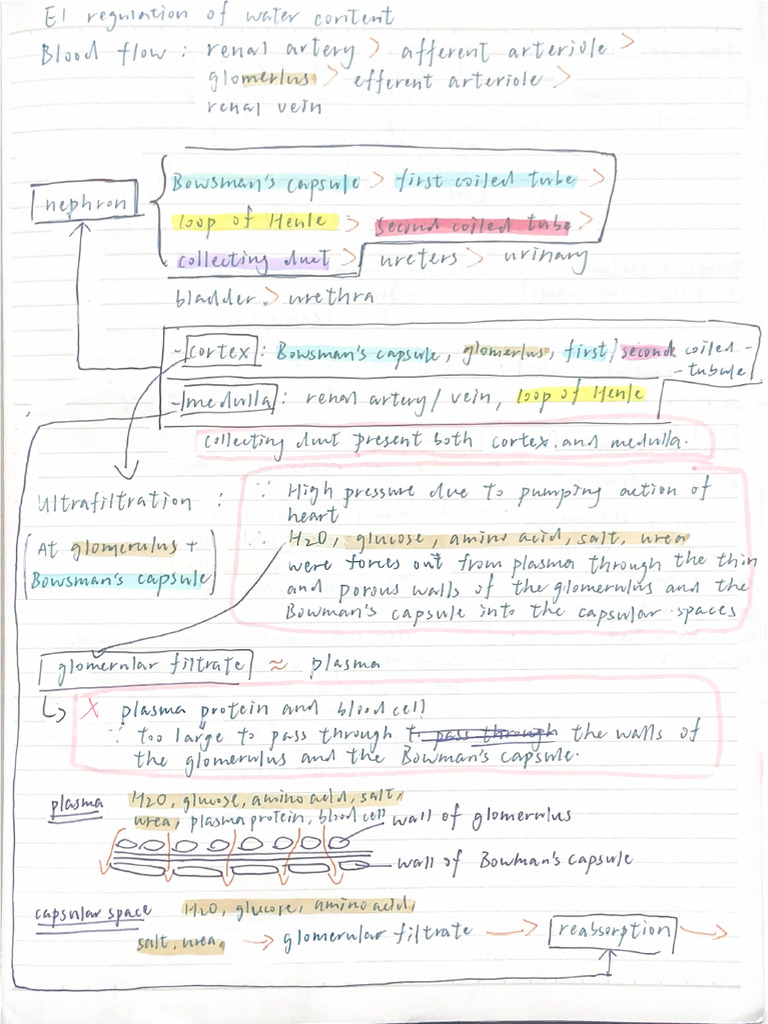 E1 regulation of water content
Blood flow : renal artery > afferent arteriole >
glomerlus > efferent arteriole >
renal vein
nephron
Bowsman's capsule > first coiled tube >
loop of Henle > second coiled tube >
collecting duct > ureters > urinary
bladder > urethra
- cortex : Bowsman's capsule, glomerlus, first/second coiled -
- tubule
- medulla : renal artery/vein, loop of Henle
collecting duct present both cortex and medulla.
Ultrafiltration : ∵ High pressure due to pumping action of
heart
(At glomerulus +
Bowsman's capsule)
∴ H2O, glucose, amino acid, salt, urea
were forces out from plasma through the thin
and porous walls of the glomerulus and the
Bowman's capsule into the capsular spaces
glomerular filtrate ≈ plasma
↳ X plasma protein and blood cell
∵ too large to pass through t pass through the walls of
the glomerulus and the Bowman's capsule.
plasma H2O, glucose, amino acid, salt,
urea, plasma protein, blood cell
wall of glomerulus
wall of Bowman's capsule
capsular space H2O, glucose, amino acid,
salt, urea, → glomerular filtrate → reabsorption →